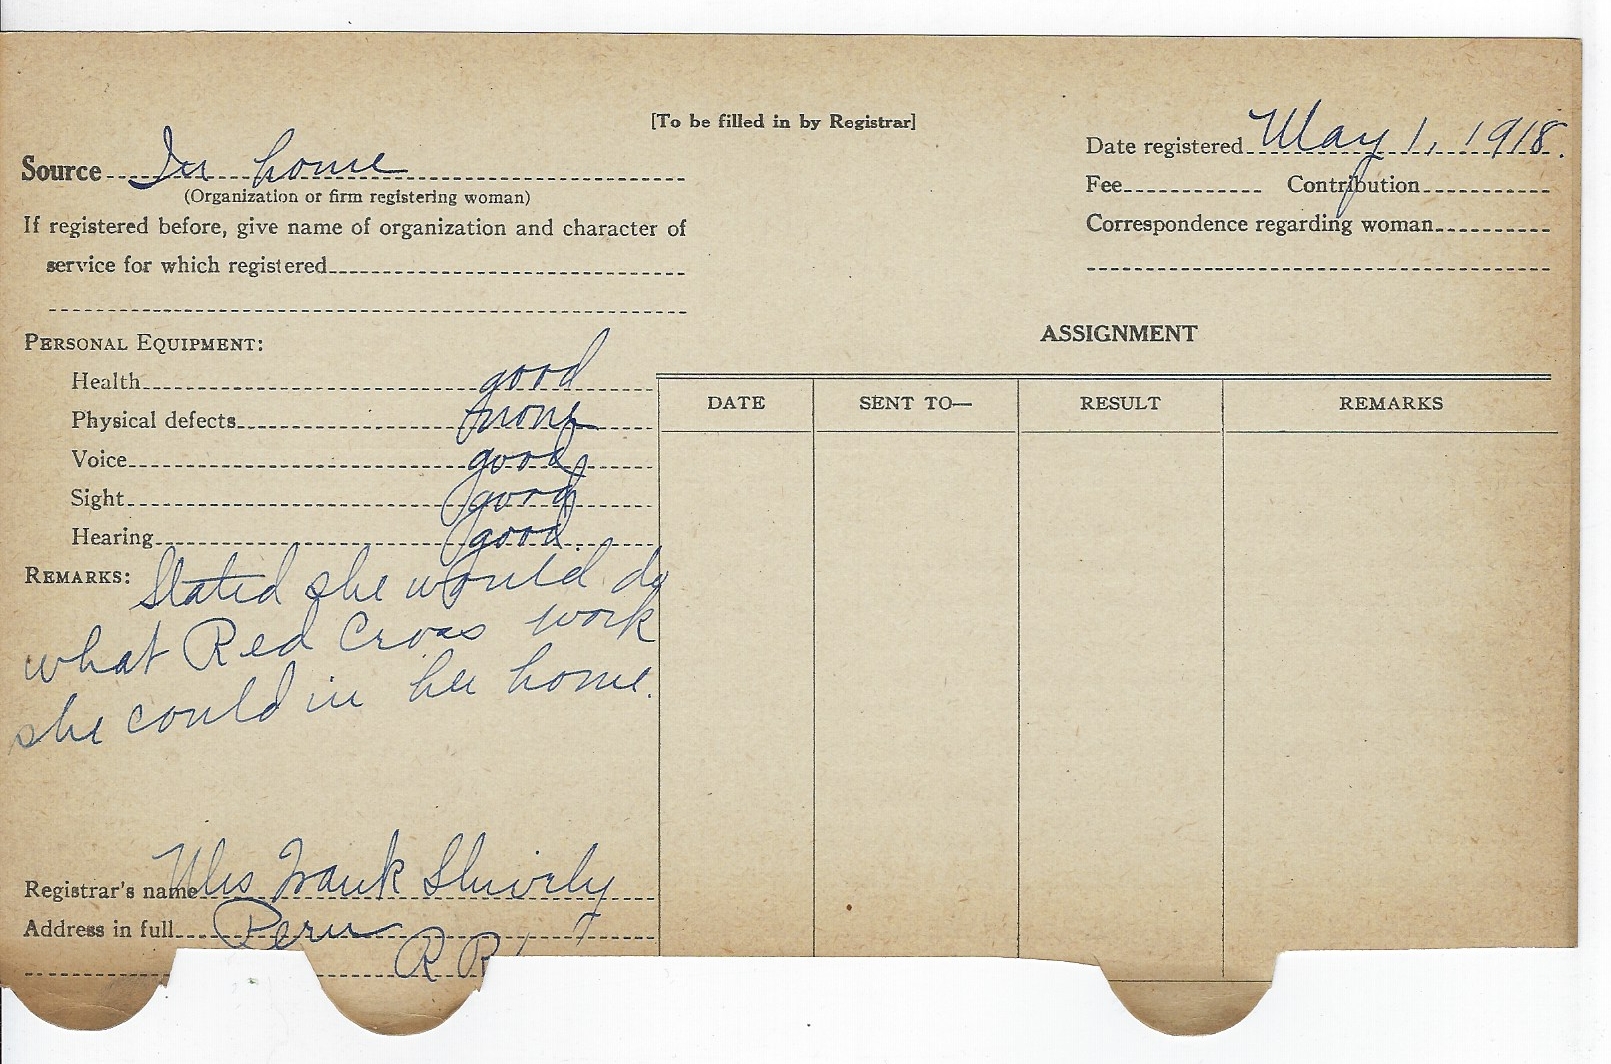 [To be filled in by Registrar]
Source In home
(Organization or firm registering woman)
If registered before, give name of organization and character of
service for which registered
Date registered May 1, 1918.
Fee Contribution
Correspondence regarding woman
PERSONAL EQUIPMENT:
Health good
Physical defects none
Voice good
Sight good
Hearing good.
REMARKS: Stated she would do
what Red Cross work
she could in her home.
Registrar's name Mrs Frank Shively
Address in full Peru
R R
ASSIGNMENT
DATE SENT TO— RESULT REMARKS